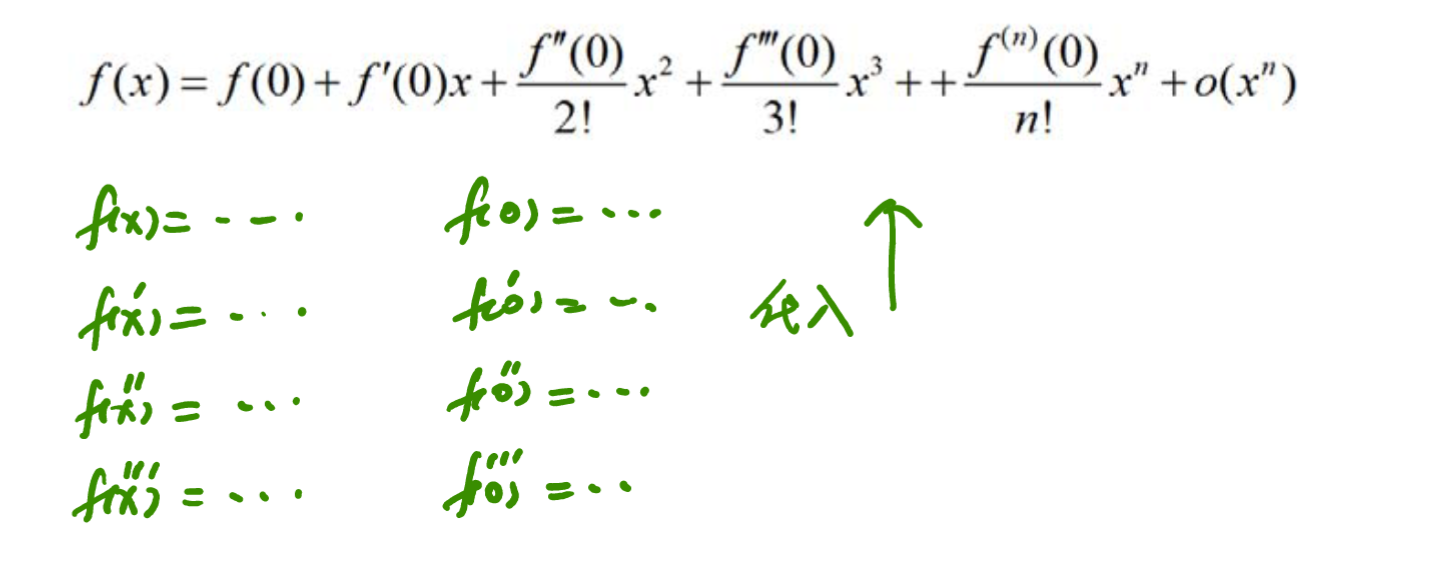 f(x) = f(0) + f'(0)x + \frac{f''(0)}{2!}x^2 + \frac{f'''(0)}{3!}x^3 + + \frac{f^{(n)}(0)}{n!}x^n + o(x^n)
f(x) = --· f(0) = ···
f(x)' = ··· f(0)' = -· 代入 ↑
f(x)'' = ··· f(0)'' = ···
f(x)''' = ··· f(0)''' = ··